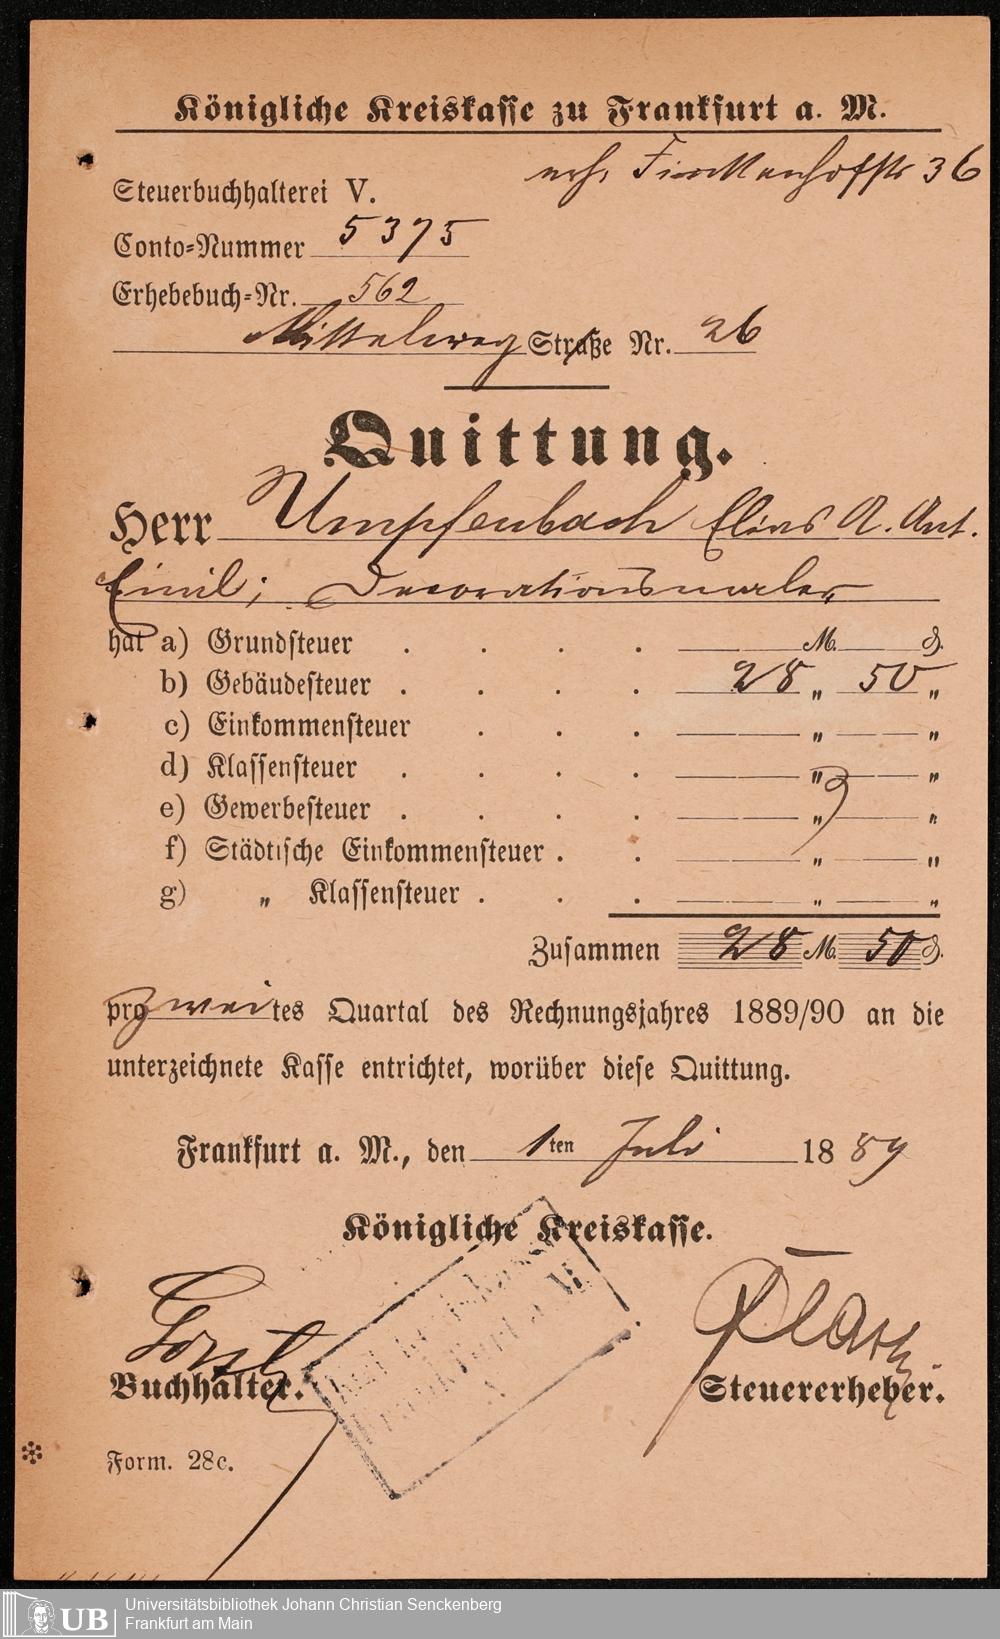 Königliche Kreiskasse zu Frankfurt a. M.
36
Steuerbuchhalterei V.
Conto-Nummer 5375
Erhebebuch-Nr. 562
Mittelweg Straße Nr. 26
Quittung.
Herr Umpfenbach Elias A. Ant.
Emil; Decorationsmaler
hat a) Grundsteuer . . . . M. ₰.
b) Gebäudesteuer . . . . 28 „ 50 „
c) Einkommensteuer . . . „ „
d) Klassensteuer . . . . „ „
e) Gewerbesteuer . . . . „ „
f) Städtische Einkommensteuer . . „ „
g) „ Klassensteuer . . . „ „
Zusammen 28 M. 50 ₰.
pro zweites Quartal des Rechnungsjahres 1889/90 an die
unterzeichnete Kasse entrichtet, worüber diese Quittung.
Frankfurt a. M., den 1ten Juli 1889
Königliche Kreiskasse.
Kreiskasse
Frankfurt a. M.
Buchhalter. Steuererheber.
Form. 28c.
UB Universitätsbibliothek Johann Christian Senckenberg
Frankfurt am Main